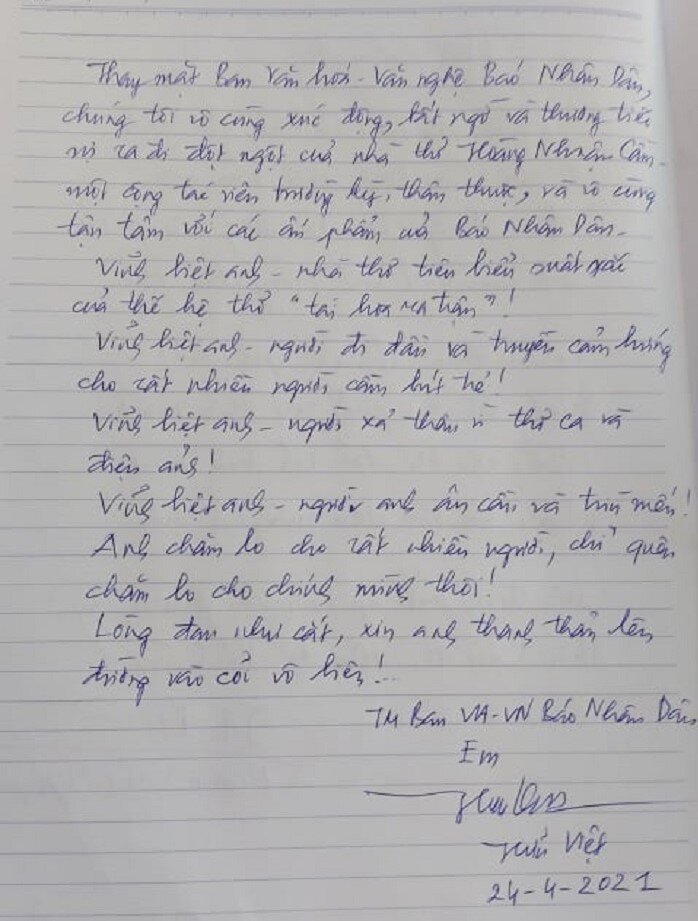 Thay mặt Ban Văn hoá - Văn nghệ Báo Nhân Dân,
chúng tôi vô cùng xúc động, bất ngờ và thương tiếc
vì ra đi đột ngột của nhà thơ Hoàng Nhuận Cầm -
một cộng tác viên trường kỳ, thân thuộc, và vô cùng
tận tâm với các ấn phẩm của Báo Nhân Dân -
Vĩnh biệt anh - nhà thơ tiêu biểu xuất sắc
của thế hệ thơ "tài hoa ra trận"!
Vĩnh biệt anh - người đi đầu và truyền cảm hứng
cho rất nhiều người cầm bút trẻ!
Vĩnh biệt anh - người xả thân vì thơ ca và
điện ảnh!
Vĩnh biệt anh - người anh ân cần và trìu mến!
Anh chăm lo cho rất nhiều người, chỉ quên
chăm lo cho chính mình thôi!
Lòng đau như cắt, xin anh thanh thản lên
đường vào cõi vô biên!..
TM Ban VH-VN Báo Nhân Dân
Em
Hữu Việt
24-4-2021